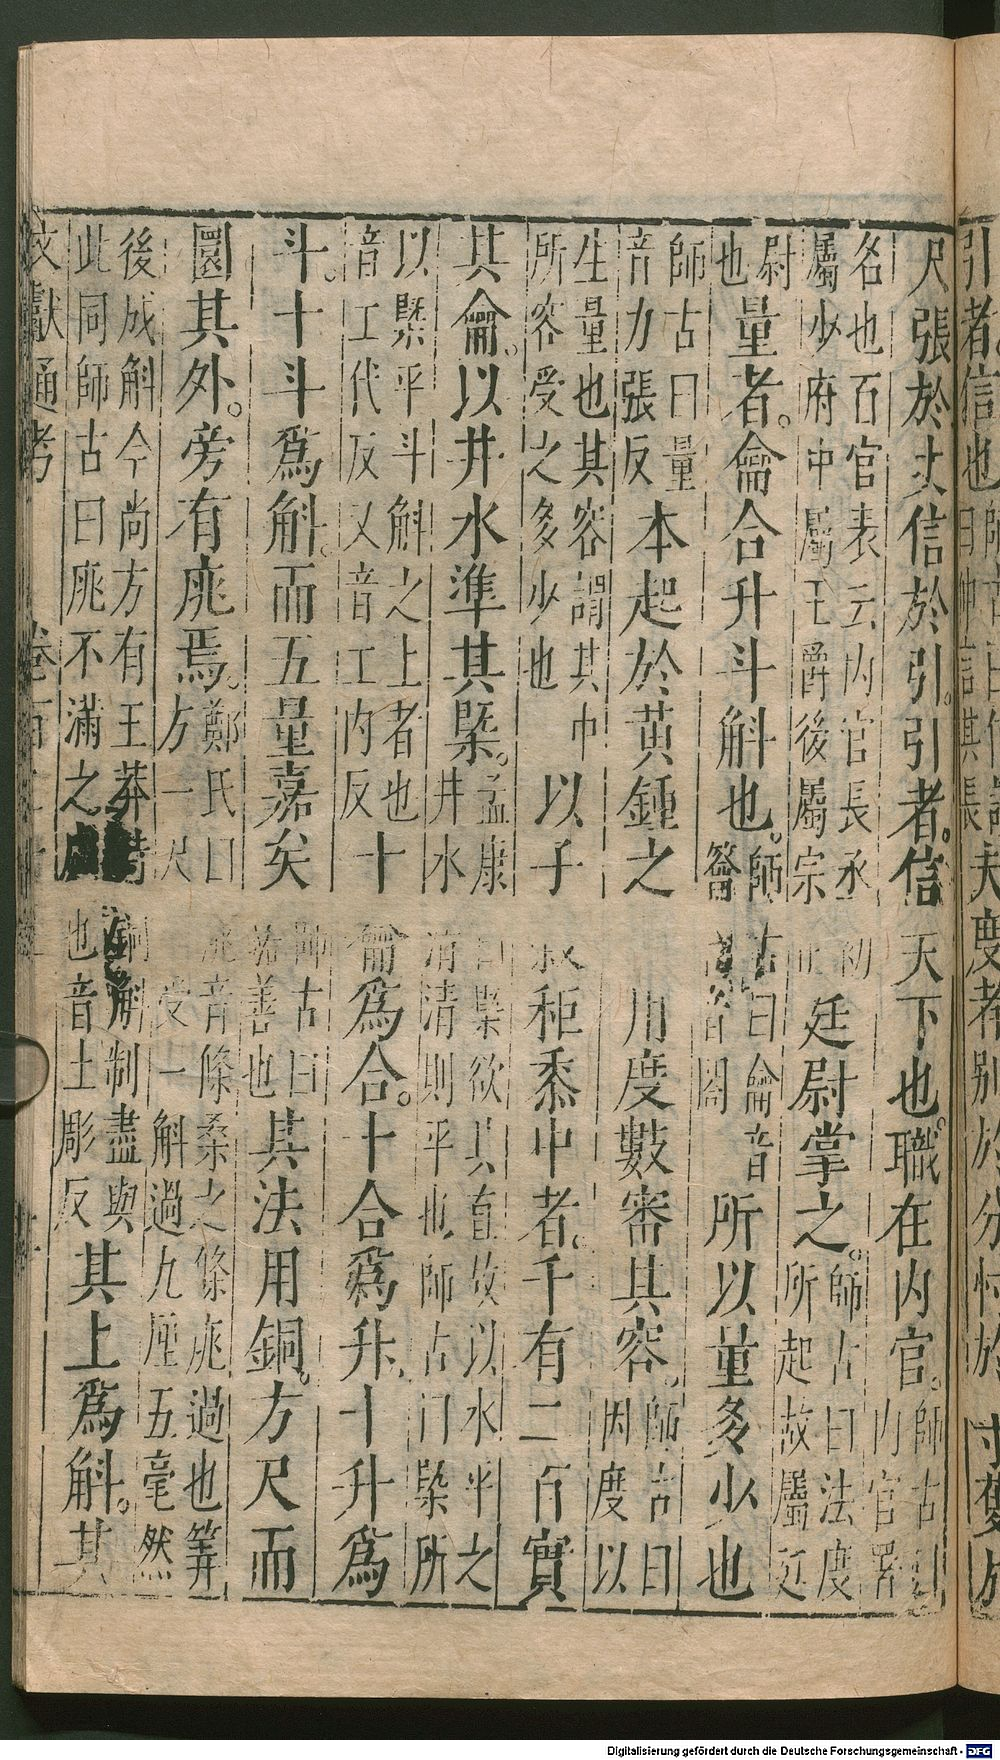 引者信也
夫度者別於分忖於寸蒦於
尺張於丈信於引引者信天下也職在内官
師古曰
内官署
名也百官表云内官長丞初
屬少府中屬主爵後屬宗正
廷尉掌之
師古曰法度
所起故屬廷
尉
也
量者龠合升斗斛也
師古曰龠音
籥合音閤
所以量多少也
師古曰量
音力張反
本起於黄鍾之
用度數審其容
師古曰
因度以
生量也其容謂其中
所容受之多少也
以子榖秬黍中者千有二百實
其龠以井水準其㮣
孟康曰㮣欲其直故以水平之
井水清清則平也師古曰㮣所
以㮣平斗斛之上者也
音工代反又音工内反
十龠爲合十合爲升十升爲
斗十斗爲斛而五量嘉矣
師古曰
嘉善也
其法用銅方尺而
圜其外旁有庣焉
鄭氏曰庣音條桑之條庣過也筭
方一尺受一斛過九厘五毫然
後成斛今尚方有王莽時銅斛制盡與
此同師古曰庣不滿之處也音土彫反
其上爲斛其
文獻通考
Digitalisierung gefördert durch die Deutsche Forschungsgemeinschaft - DFG